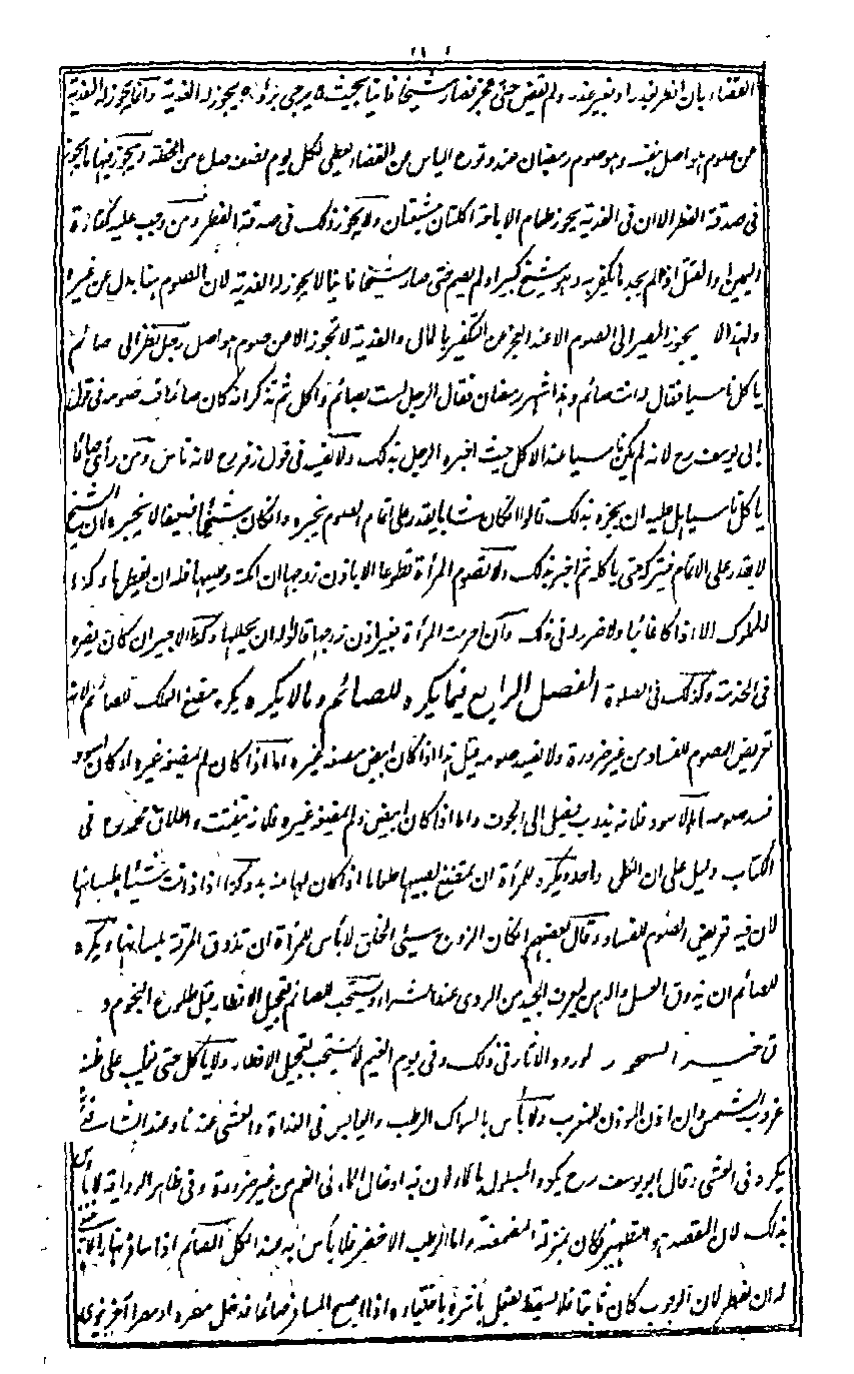 القضاء بان افطر فيه او بغير عذر ولم يقض حتى عجز فصار شيخا فانيا بحيث لا يرجى برؤه يجوز له الفدية وانما يجوز له الفدية
عن صوم هو اصل بنفسه وهو صوم رمضان عند وقوع الياس عن القضاء يعطى لكل يوم نصف صاع من الحنطة ويجوز فيها ما يجوز
فى صدقة الفطر الا ان فى الفدية يجوز طعام الاباحة اكلتان مشبعتان ولا يجوز ذلك فى صدقة الفطر ومن وجب عليه كفارة
اليمين او القتل اذا لم يجد ما يكفر به وهو شيخ كبير او لم يصم حتى صار شيخا فانيا لا يجوز له الفدية لان الصوم هنا بدل عن غيره
ولهذا لا يجوز المصير الى الصوم الا عند العجز عن التكفير بالمال والفدية لا تجوز الا عن صوم هو اصل رجل نظر الى صائم
ياكل ناسيا فقال له انت صائم وهذا شهر رمضان فقال الرجل لست بصائم واكل ثم تذكر انه كان صائما فسد صومه فى قول
ابى يوسف رح لانه لم يكن ناسيا عند الاكل حيث اخبره الرجل بذلك ولا يفسد فى قول زفر رح لانه ناس ومن رأى صائما
ياكل ناسيا هل عليه ان يخبره بذلك قالوا ان كان شابا يقدر على اتمام الصوم يخبره وان كان شيخا ضعيفا لا يخبره لان الشيخ
لا يقدر على الاتمام فيتركه حتى ياكله ثم اخبر بذلك ولا تصوم المرأة تطوعا الا باذن زوجها ان كنه وعليها فله ان يفطرها وكذا
المملوك الا اذا كان غائبا ولا ضرر له فى ذلك وان احرمت المرأة بغير اذن زوجها قالوا له ان يحللها وكذا الاجير ان كان يضره
فى الخدمة وكذلك فى الصلوة الفصل الرابع فيما يكره للصائم وما لا يكره يكره مضغ العلك للصائم لانه
تعريض الصوم للفساد من غير ضرورة ولا يفسد صومه قيل هذا اذا كان ابيض مضغه غيره اما اذا كان لم يمضغه غيره او كان اسود
فسد صومه اما الاسود فلانه يذوب فيصل الى الجوف واما اذا كان ابيض ولم يمضغه غيره فلانه يتفتت واطلاق محمد رح فى
الكتاب دليل على ان الكل واحد ويكره للمرأة ان تمضغ لصبيها طعاما اذا كان لها منه بد وكذا اذا ذاقت شيئا بلسانها
لان فيه تعريض الصوم للفساد وقال بعضهم ان كان الزوج سيئ الخلق لا بأس للمرأة ان تذوق المرقة بلسانها ويكره
للصائم ان يذوق العسل والدهن ليعرف الجيد من الردى عند الشراء ويستحب للصائم تعجيل الافطار قبل طلوع النجوم و
تاخير السحور لورود الاثار فى ذلك وفى يوم الغيم لا يستحب تعجيل الافطار ولا ياكل حتى يغلب على ظنه
غروب الشمس وان اذن المؤذن للمغرب ولا بأس بالسواك الرطب واليابس فى الغداة والعشى عندنا وعند الشافعى
يكره فى العشى وقال ابو يوسف رح يكره المبلول بالماء لان فيه ادخال الماء فى الفم من غير ضرورة وفى ظاهر الرواية لا بأس
بذلك لان المقصد هو التطهير فكان بمنزلة المضمضة واما الرطب الاخضر فلا بأس به عند الكل الصائم اذا سافر نهارا لا
له ان يفطر لان الوجوب كان ثابتا فلا يسقط بفعل باشره باختياره واذا اصبح المسافر صائما فدخل مصره او مصرا آخر ينوى